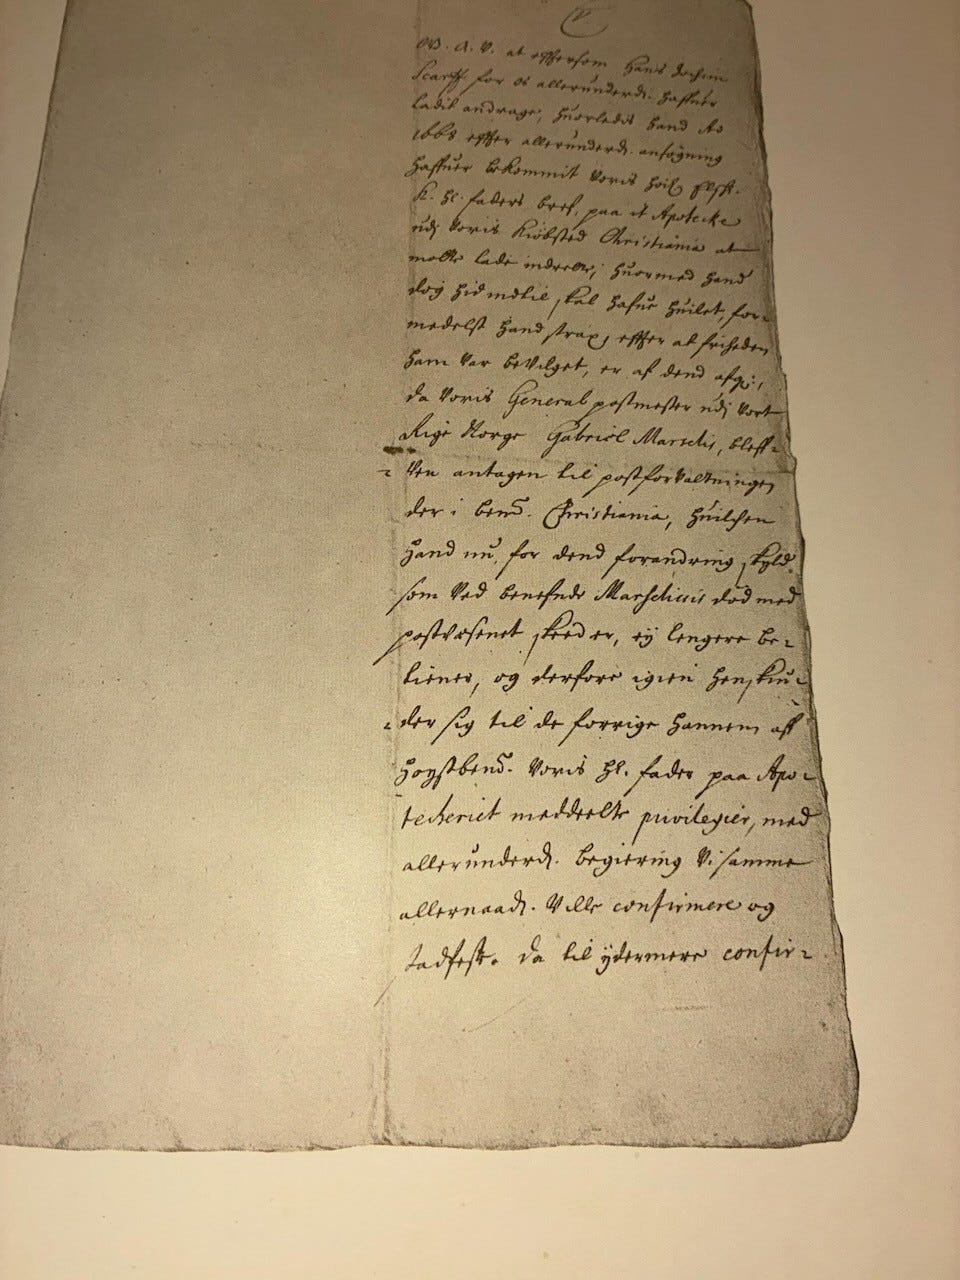 G. A. V. at efftersom Hans Jochim
Scarff for os allerunderd. haffuer
ladit andrage, huorledis hand Ao
1668 effter allerunderd. ansøgning
haffuer bekommit Voris
K. hl. faders bref, paa it Apotecke
udj Voris Kiøbsted Christiania at
motte lade indrette, huormed hand
dog hid indtil skal hafue huilet, for-
medelst hand strax, effter at friheden
ham var bevilget, er af dend
da Voris General postmester udj Vort
Rige Norge Gabriel Marselis, bleff-
-ven antagen til postforvaltningen
der i bemt. Christiania, huilchen
hand nu, for dend forandring skyld
som ved benefnde Marselissis død med
postvæsenet skeed er, ej lengere be-
tienes, og derfore igien henskiu-
-der sig til de forrige hannem aff
høystbemt. Voris hl. fader paa Apo-
techeriet meddeelte privilegier, med
allerunderd. begiering Vi samme
allernaad. Ville confirmere og
stadfeste. da til ydermere confir-